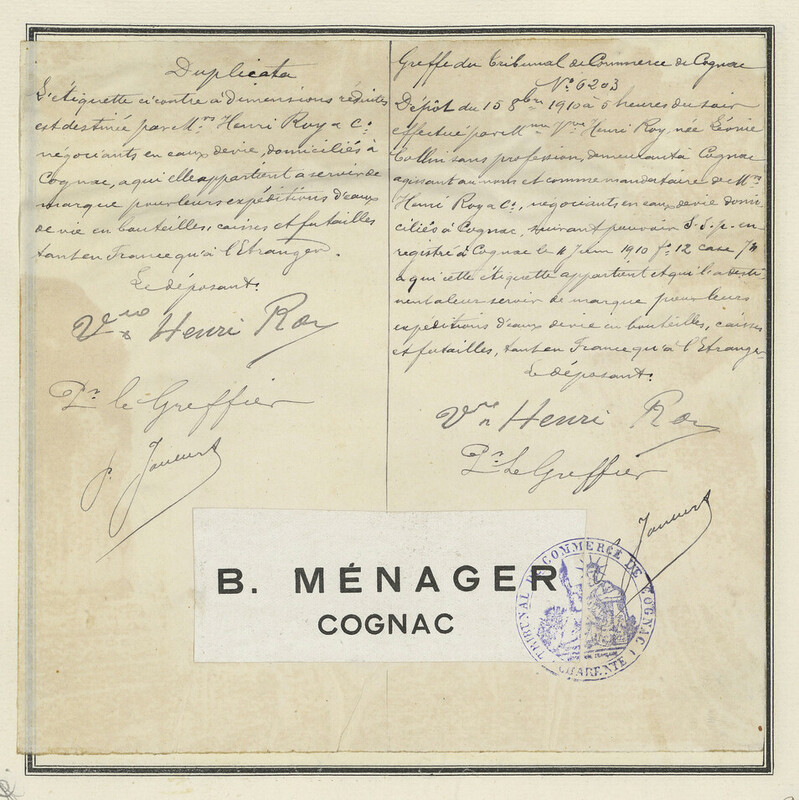 Duplicata
L'étiquette ci contre à dimensions réduites
est destinée par M.rs Henri Roy & C.o
négociants en eaux de vie, domiciliés à
Cognac, a qui elle appartient a servir de
marque pour leurs expéditions d'eaux
de vie en bouteilles, caisses et futailles
tant en France qu'à l'Etranger.
Le déposant.
Vve Henri Roy
Pr le Greffier
Greffe du Tribunal de Commerce de Cognac
No 6203
Dépôt du 15 8bre 1910 à 5 heures du soir
effectué par Mme Vve Henri Roy, née Léonie
Collin sans profession, demeurant à Cognac
agissant au nom et comme mandataire de M.rs
Henri Roy & C.o, négociants en eaux de vie domi-
ciliés à Cognac, suivant pouvoir S.S.p. en-
registré à Cognac le Juin 1910 fo 12 case
a qui cette étiquette appartient et qui l'a desti-
nent a leur servir de marque pour leurs
expéditions d'eaux de vie en bouteilles, caisses
et futailles, tant en France qu'à l'Etranger
Le déposant.
Vve Henri Roy
Pr Le Greffier
B. MÉNAGER
COGNAC
TRIBUNAL DE COMMERCE DE COGNAC
CHARENTE